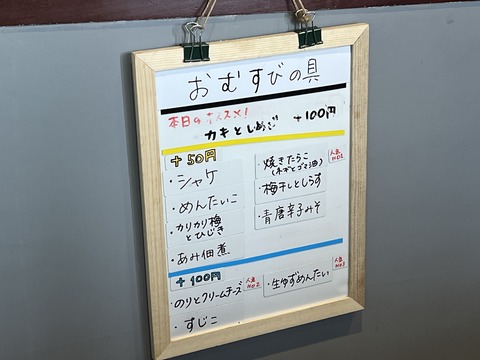 おむすびの具
本日のオススメ!
カキとしめじ +100円
+50円
・シャケ
・めんたいこ
・カリカリ梅
とひじき
・あみ佃煮
・焼きたらこ
(ネギとゴマ油)
人気
NO2
・梅干しとしらす
・青唐辛子みそ
+100円
・のりとクリームチーズ
人気
・すじこ
・生ゆずめんたい
人気